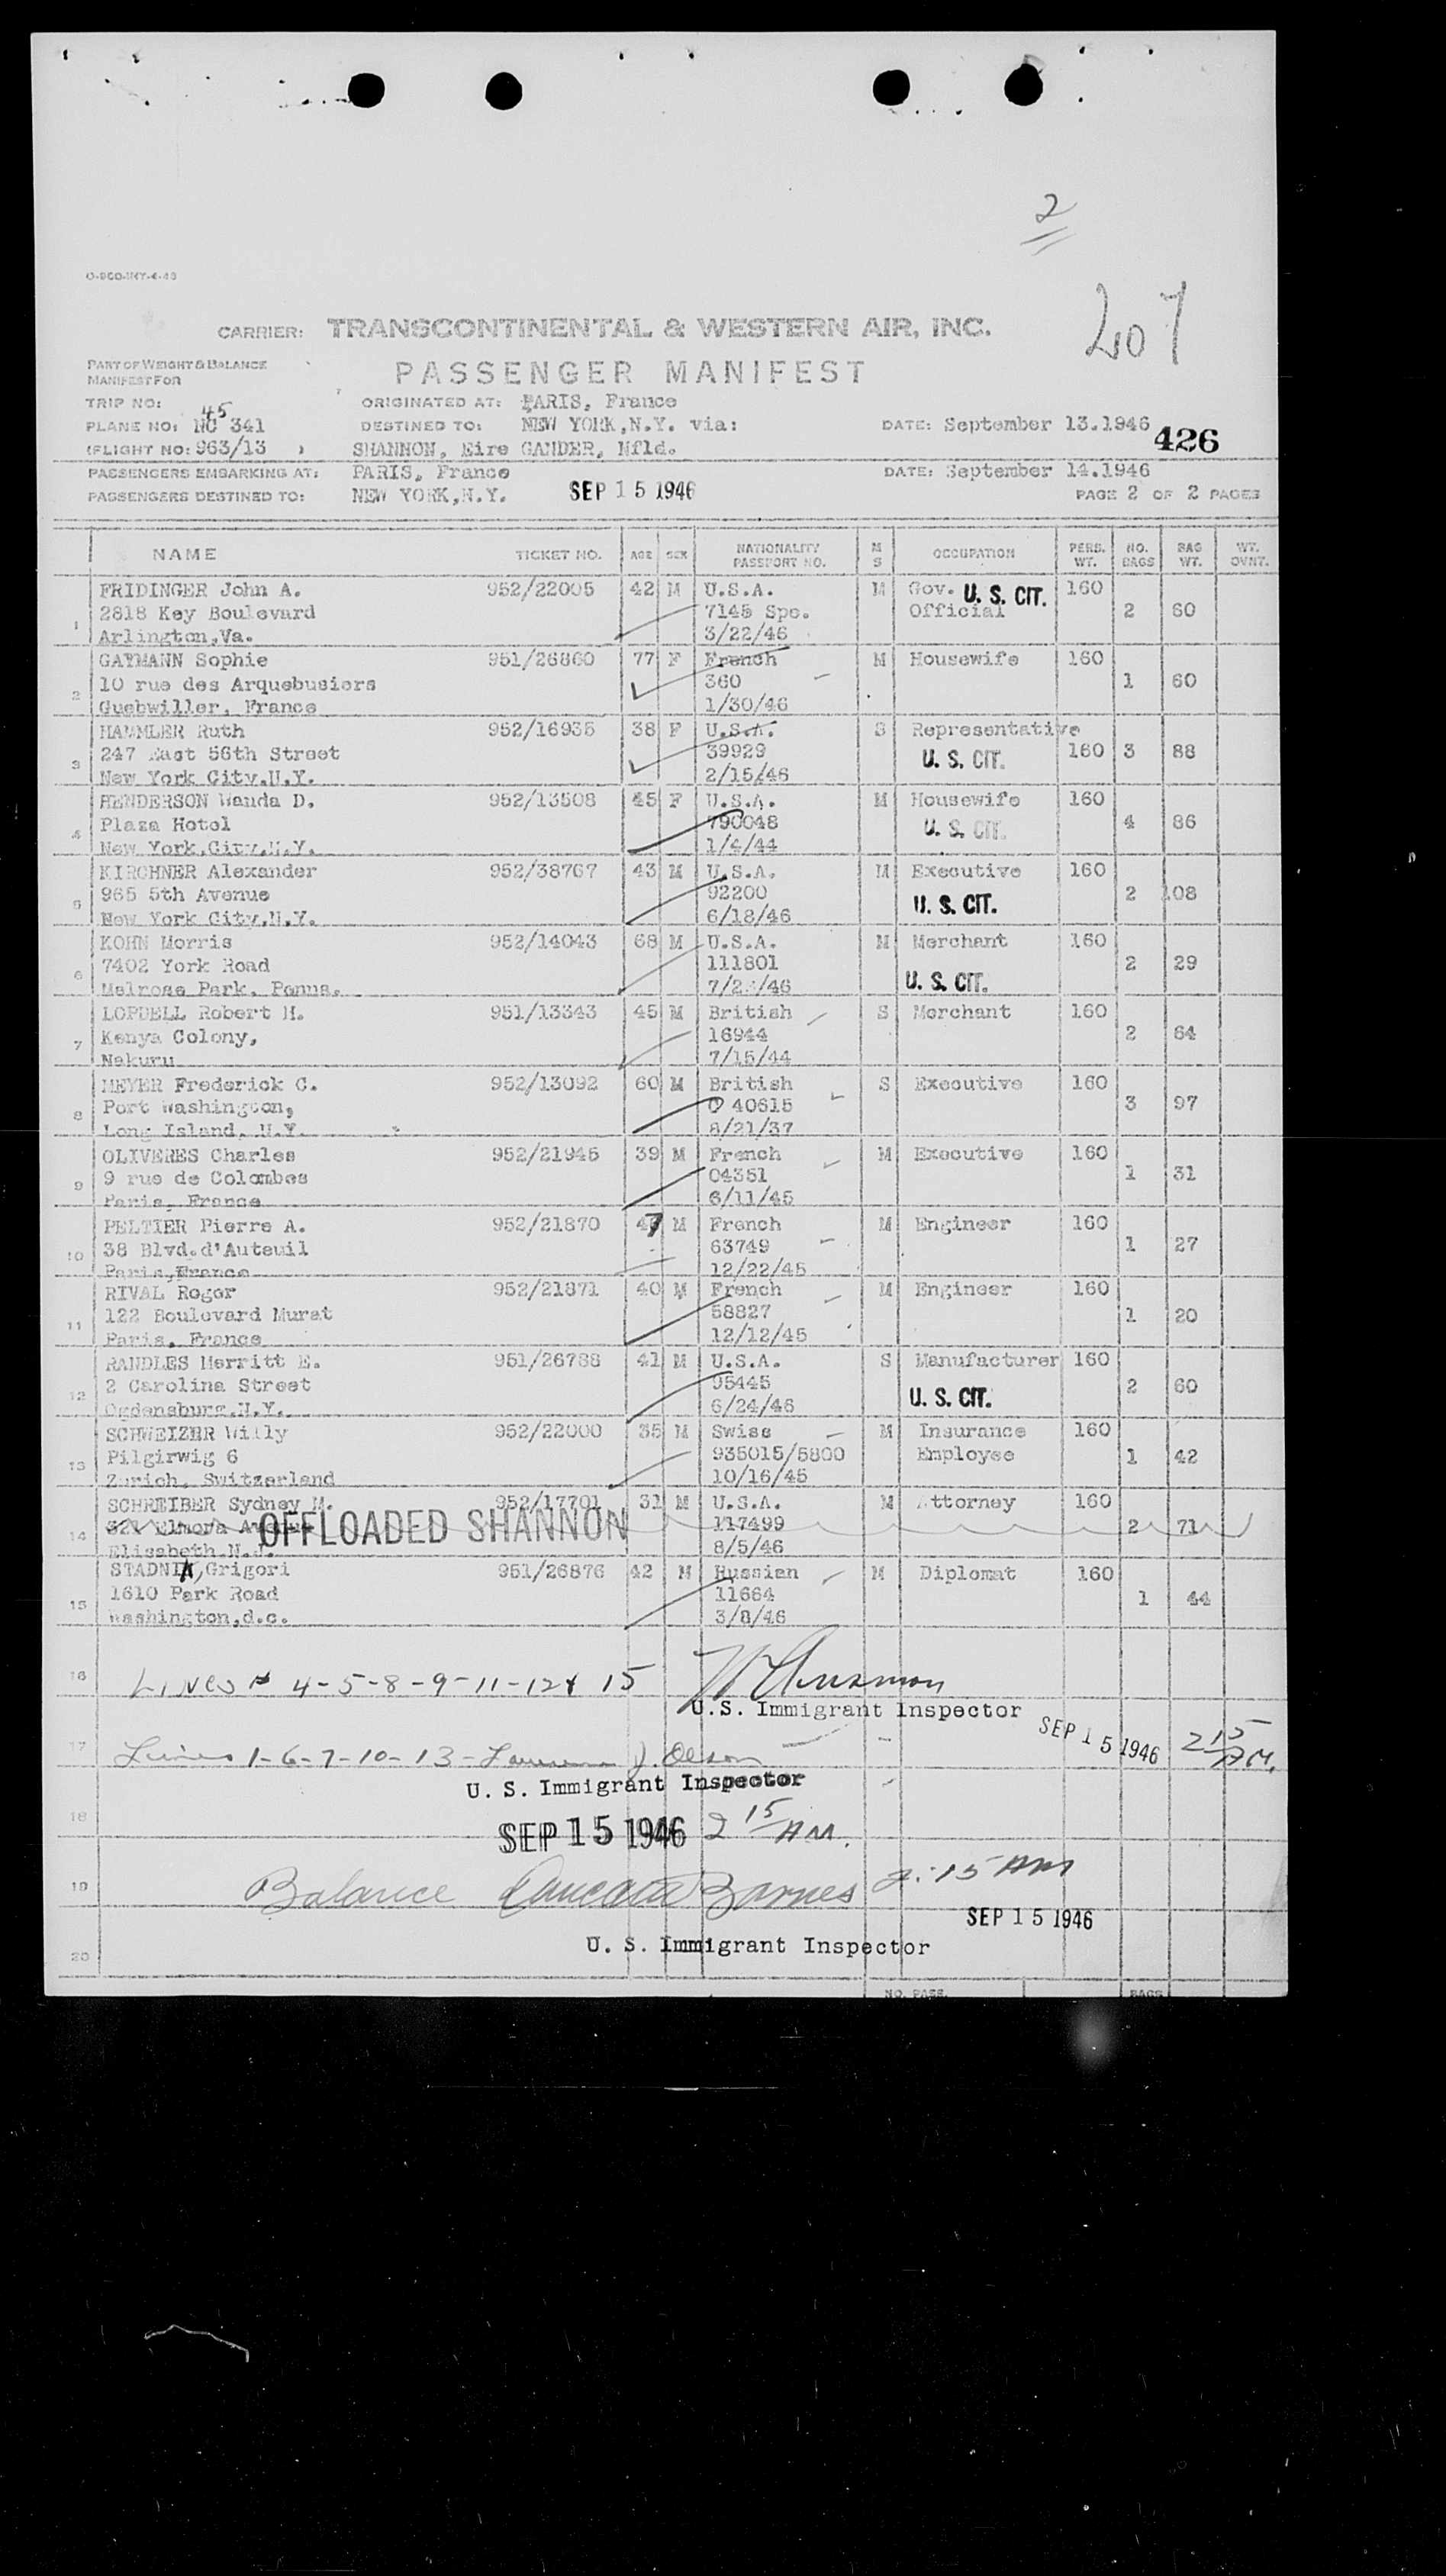 2
O-960-INT-4-46
407
CARRIER: TRANSCONTINENTAL & WESTERN AIR, INC.
PART OF WEIGHT & BALANCE
MANIFEST FOR
PASSENGER MANIFEST
TRIP NO: ORIGINATED AT: PARIS, France
45
PLANE NO: NC 341 DESTINED TO: NEW YORK,N.Y. via: DATE: September 13.1946
426
(FLIGHT NO: 963/13 ) SHANNON, Eire GANDER, Nfld.
PASSENGERS EMBARKING AT: PARIS, France DATE: September 14.1946
PASSENGERS DESTINED TO: NEW YORK,N.Y. SEP 15 1946 PAGE 2 OF 2 PAGES
NAME TICKET NO. AGE SEX NATIONALITY PASSPORT NO. M S OCCUPATION PERS. WT. NO. BAGS BAG WT. WT. OVNT.
FRIDINGER John A. 952/22005 42 M U.S.A. M Gov. U. S. CIT. 160
2818 Key Boulevard 7145 Spe. Official 2 60
1 Arlington,Va. 3/22/46
GAYMANN Sophie 951/26860 77 F French M Housewife 160
10 rue des Arquebusiers 360 1 60
2 Guebwiller, France 1/30/46
HAMMLER Ruth 952/16935 38 F U.S.A. S Representative
247 East 56th Street 39929 U. S. CIT. 160 3 88
3 New York City,N.Y. 2/15/46
HENDERSON Wanda D. 952/13508 45 F U.S.A. M Housewife 160
Plaza Hotel 790048 U. S. CIT. 4 86
4 New York,City,N.Y. 1/4/44
KIRCHNER Alexander 952/38767 43 M U.S.A. M Executive 160
965 5th Avenue 92200 U. S. CIT. 2 108
5 New York City,N.Y. 6/18/46
KOHN Morris 952/14043 68 M U.S.A. M Merchant 160
7402 York Road 111801 2 29
6 Melrose Park, Penna. U. S. CIT.
LOPDELL Robert H. 951/13343 45 M British S Merchant 160
Kenya Colony, 16944 2 64
7 Nakuru 7/15/44
MEYER Frederick C. 952/13092 60 M British S Executive 160
Port Washington, 40615 3 97
8 Long Island, N.Y. 8/21/37
OLIVERES Charles 952/21945 39 M French M Executive 160
9 rue de Colombes 04351 1 31
9 Paris, France 6/11/45
PELTIER Pierre A. 952/21870 47 M French M Engineer 160
38 Blvd.d'Auteuil 63749 1 27
10 Paris,France 12/22/45
RIVAL Roger 952/21871 40 M French M Engineer 160
122 Boulevard Murat 58827 1 20
11 Paris, France 12/12/45
RANDLES Merritt E. 951/26788 41 M U.S.A. S Manufacturer 160
2 Carolina Street 95445 2 60
12 Ogdensburg,N.Y. 6/24/46 U. S. CIT.
SCHWEIZER Willy 952/22000 35 M Swiss M Insurance 160
Pilgirwig 6 935015/5800 Employee 1 42
13 Zurich, Switzerland 10/16/45
SCHREIBER Sydney M. 952/17701 31 M U.S.A. M Attorney 160
321 Elmora OFFLOADED SHANNON 117499 2 71
14 Elizabeth,N.J. 8/5/46
STADNIK,Grigori 951/26876 42 M Russian M Diplomat 160
1610 Park Road 11664 1 44
15 Washington,d.c. 3/8/46
16 Lines # 4-5-8-9-11-12 & 15
U.S. Immigrant Inspector SEP 15 1946 2 15 AM.
17 Lines 1-6-7-10-13- J. Olson
U. S. Immigrant Inspector
18 SEP 15 1946 2 15 AM.
19 Balance Barnes 2:15 AM
SEP 15 1946
20 U. S. Immigrant Inspector
NO. PASS. BAGS